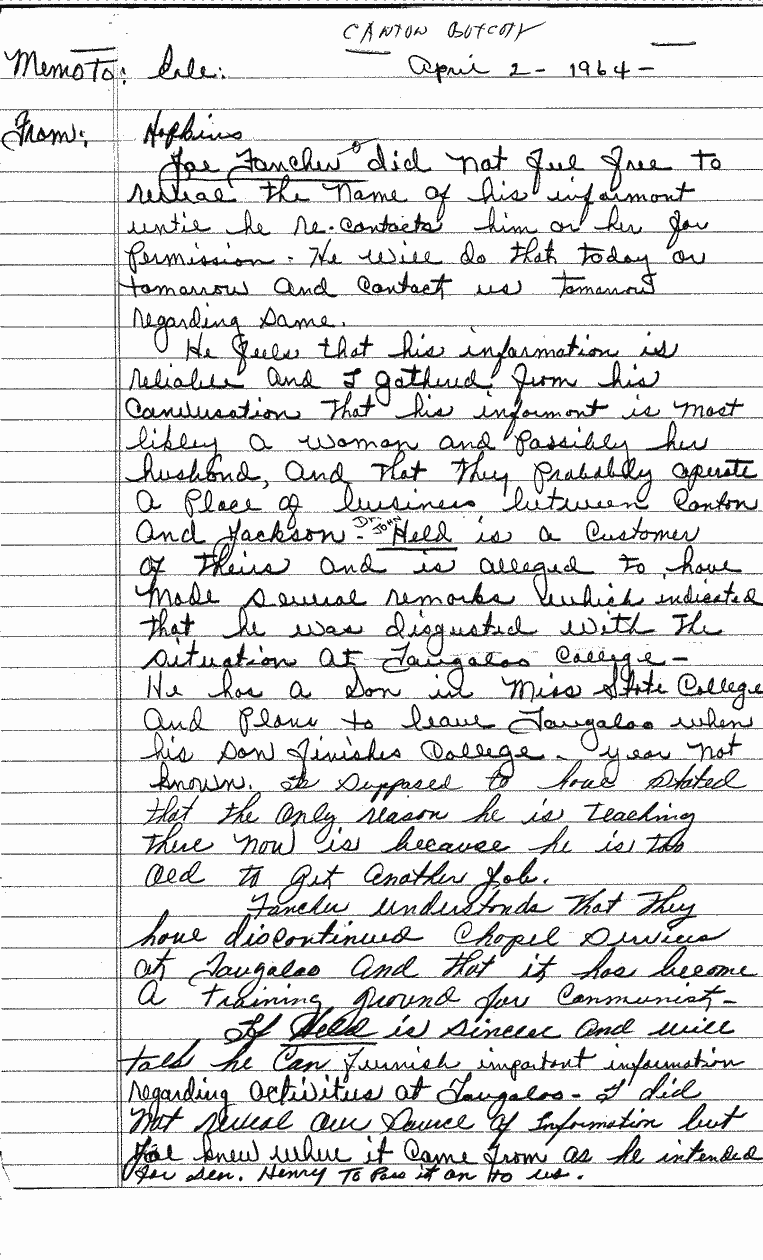 CANTON BOYCOTT
Memo To: Erle: April 2 - 1964 -
From: Hopkins
Joe Fancher did not feel free to
reveal the name of his informont
until he re-contacts him or her for
permission. He will do that today or
tomarrow and contact us tomarrow
regarding same.
He feels that his information is
reliable and I gathered from his
conversation that his informont is most
likley a woman and possibly her
husbond, and that they probably operate
a place of business between Canton
and Jackson. Dr. JOHN Held is a customer
of theirs and is alleged to have
made several remarks which indicated
that he was disgusted with the
situation at Taugaloo College -
He has a son in Miss State College
and plans to leave Taugaloo when
his son finishes College - year not
known. Is supposed to have stated
that the only reason he is teaching
there now is because he is too
old to get another job.
Fancher understonds that they
have discontinued chapel services
at Taugaloo and that it has become
a training ground for Communist -
If Held is sincere and will
talk he can furnish important information
regarding activities at Taugaloo - I did
not reveal our source of information but
Joe knew where it came from as he intended
for Sen. Henry to pass it on to us.